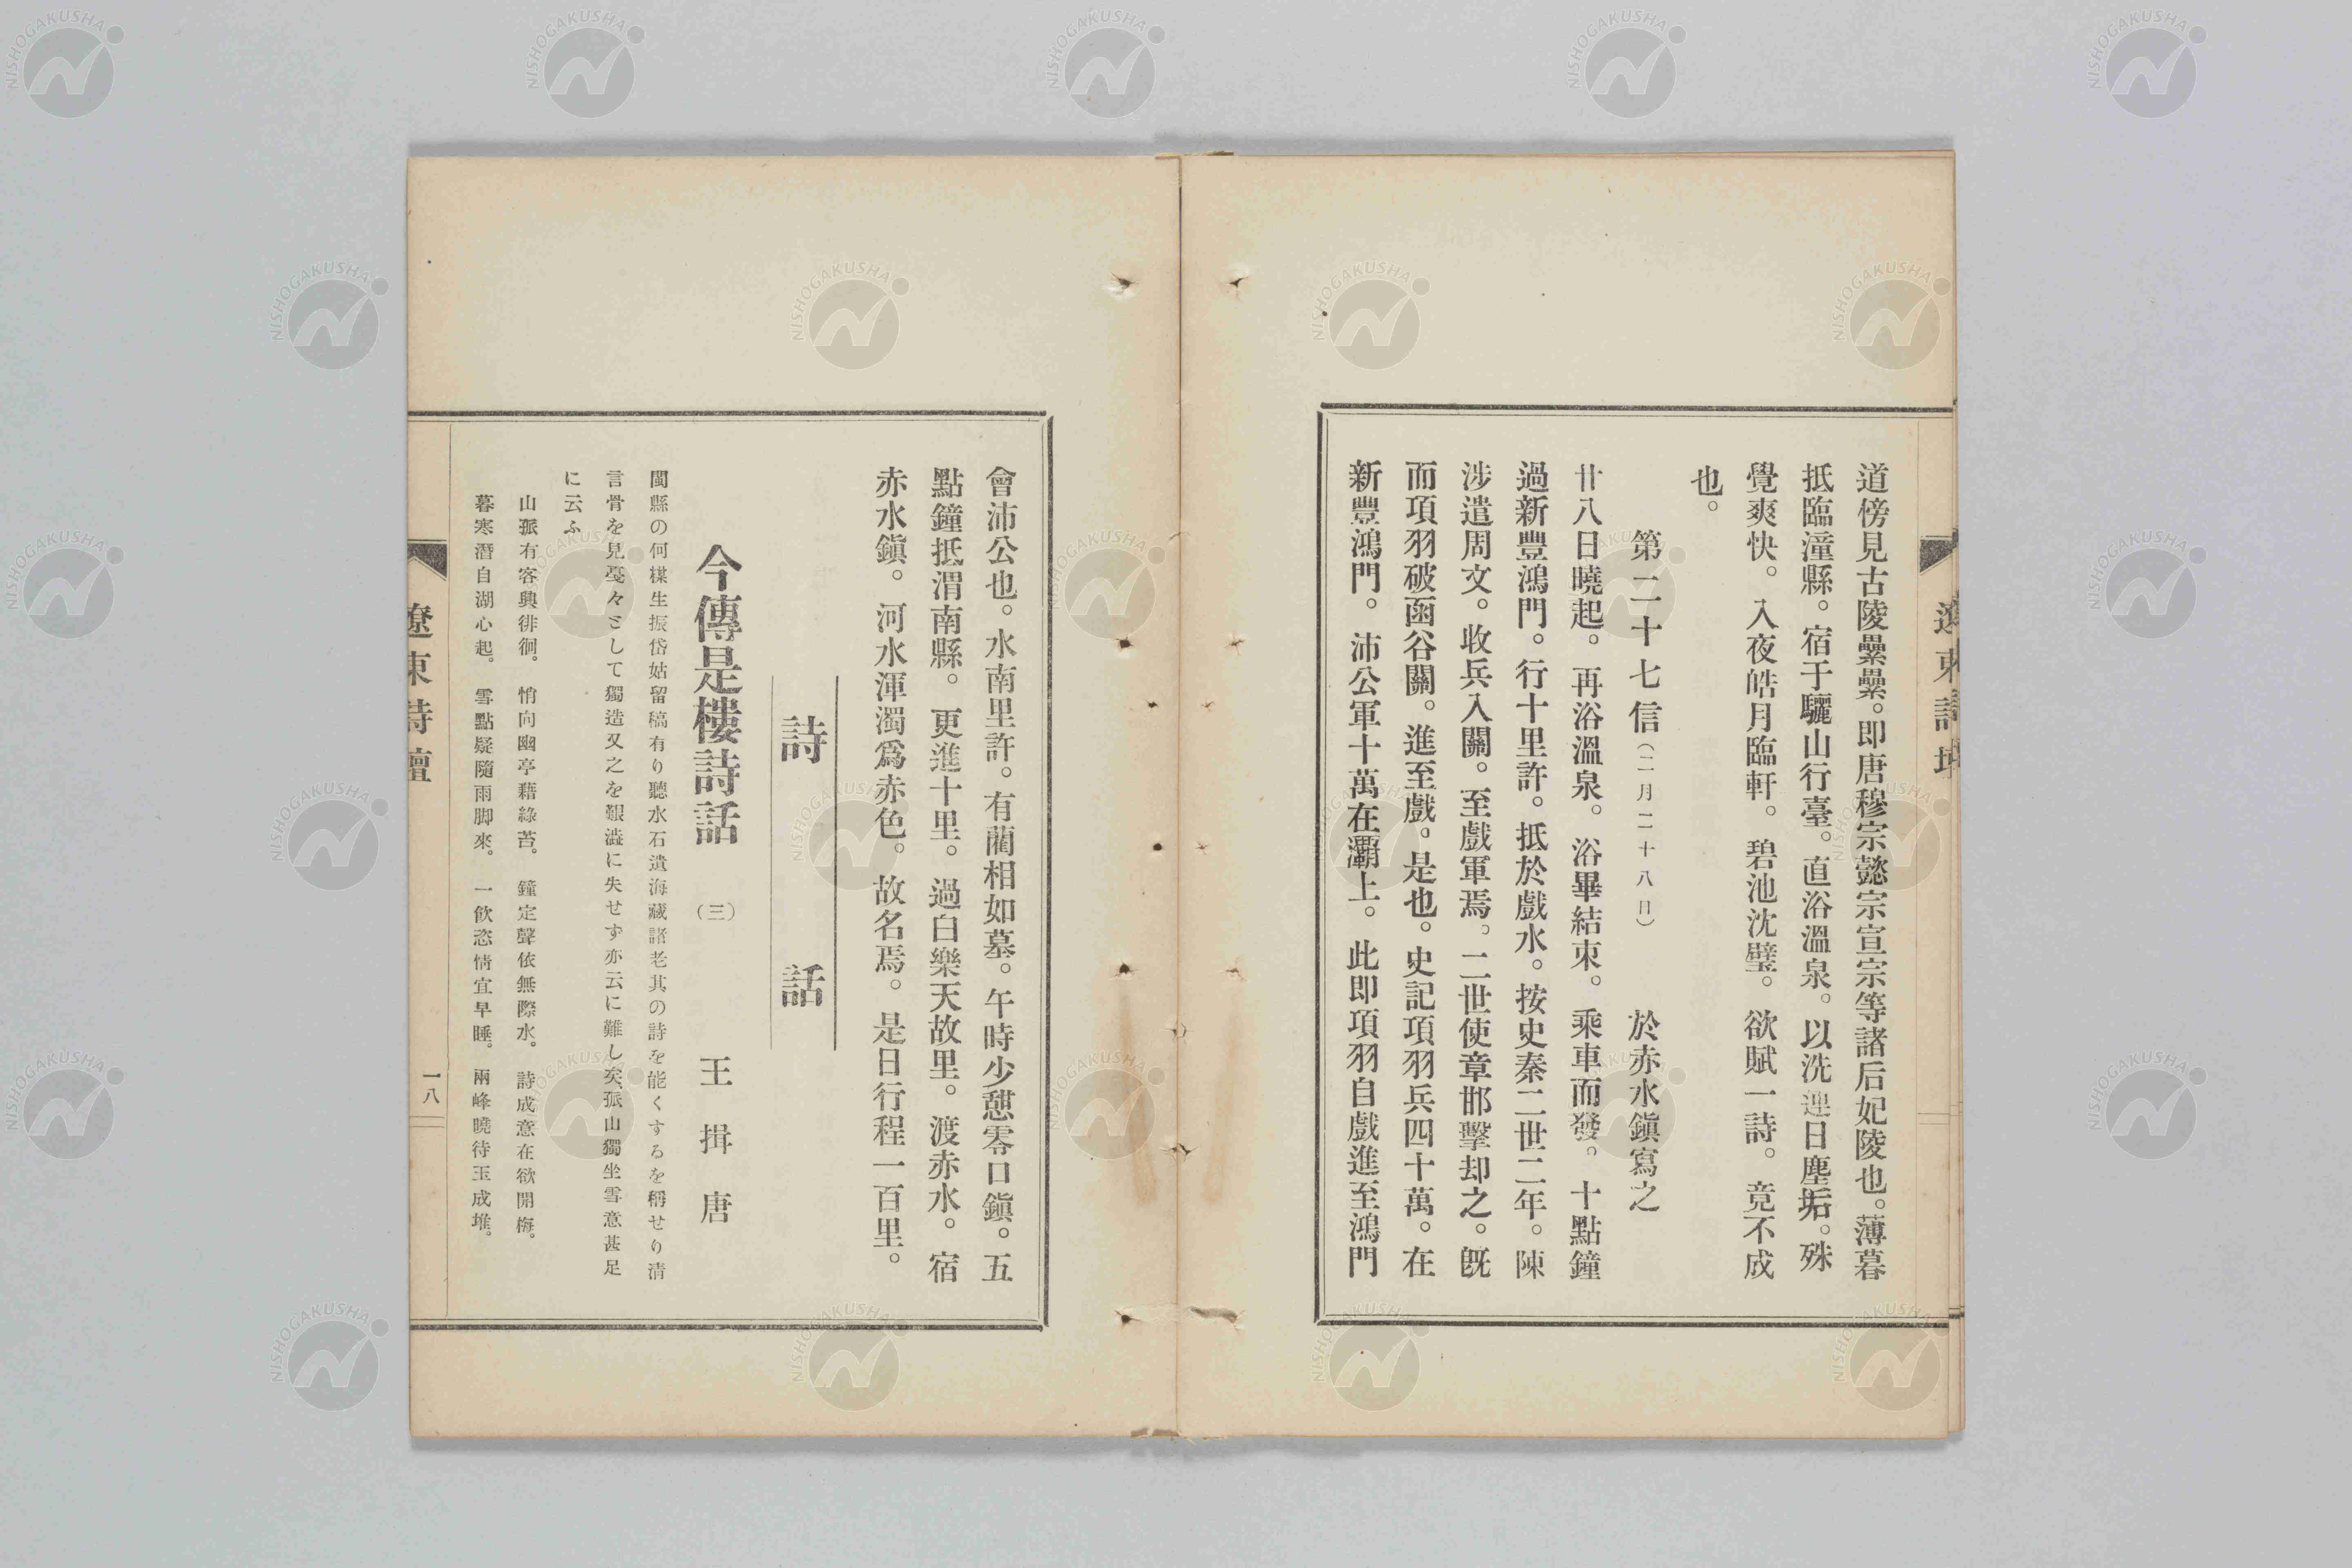 道傍見古陵纍纍。即唐穆宗懿宗宣宗等諸后妃陵也。薄暮
抵臨潼縣。宿于驪山行臺。直浴溫泉。以洗連日塵垢。殊
覺爽快。入夜皓月臨軒。碧池沈璧。欲賦一詩。竟不成
也。
第二十七信(二月二十八日) 於赤水鎭寫之
廿八日曉起。再浴溫泉。浴畢結束。乘車而發。十點鐘
過新豐鴻門。行十里許。抵於戲水。按史秦二世二年。陳
涉遣周文。收兵入關。至戲軍焉。二世使章邯擊却之。旣
而項羽破函谷關。進至戲。是也。史記項羽兵四十萬。在
新豐鴻門。沛公軍十萬在灞上。此即項羽自戲進至鴻門
會沛公也。水南里許。有藺相如墓。午時少憩零口鎭。五
點鐘抵渭南縣。更進十里。過白樂天故里。渡赤水。宿
赤水鎭。河水渾濁爲赤色。故名焉。是日行程一百里。
詩話
今傳是樓詩話 (三) 王揖唐
閩縣の何楳生振岱姑留稿有り聽水石遺海藏諸老其の詩を能くするを稱せり淸
言骨を見戞々として獨造又之を艱澁に失せず亦云に難し矣孤山獨坐雪意甚足
に云ふ
山孤有客興徘徊。悄向幽亭藉綠苔。鐘定聲依無際水。詩成意在欲開梅。
暮寒潛自湖心起。雪點疑隨雨脚來。一飮恣情宜早睡。兩峰曉待玉成堆。
遼東詩壇
一八
遼東詩壇
NISHOGAKUSHA